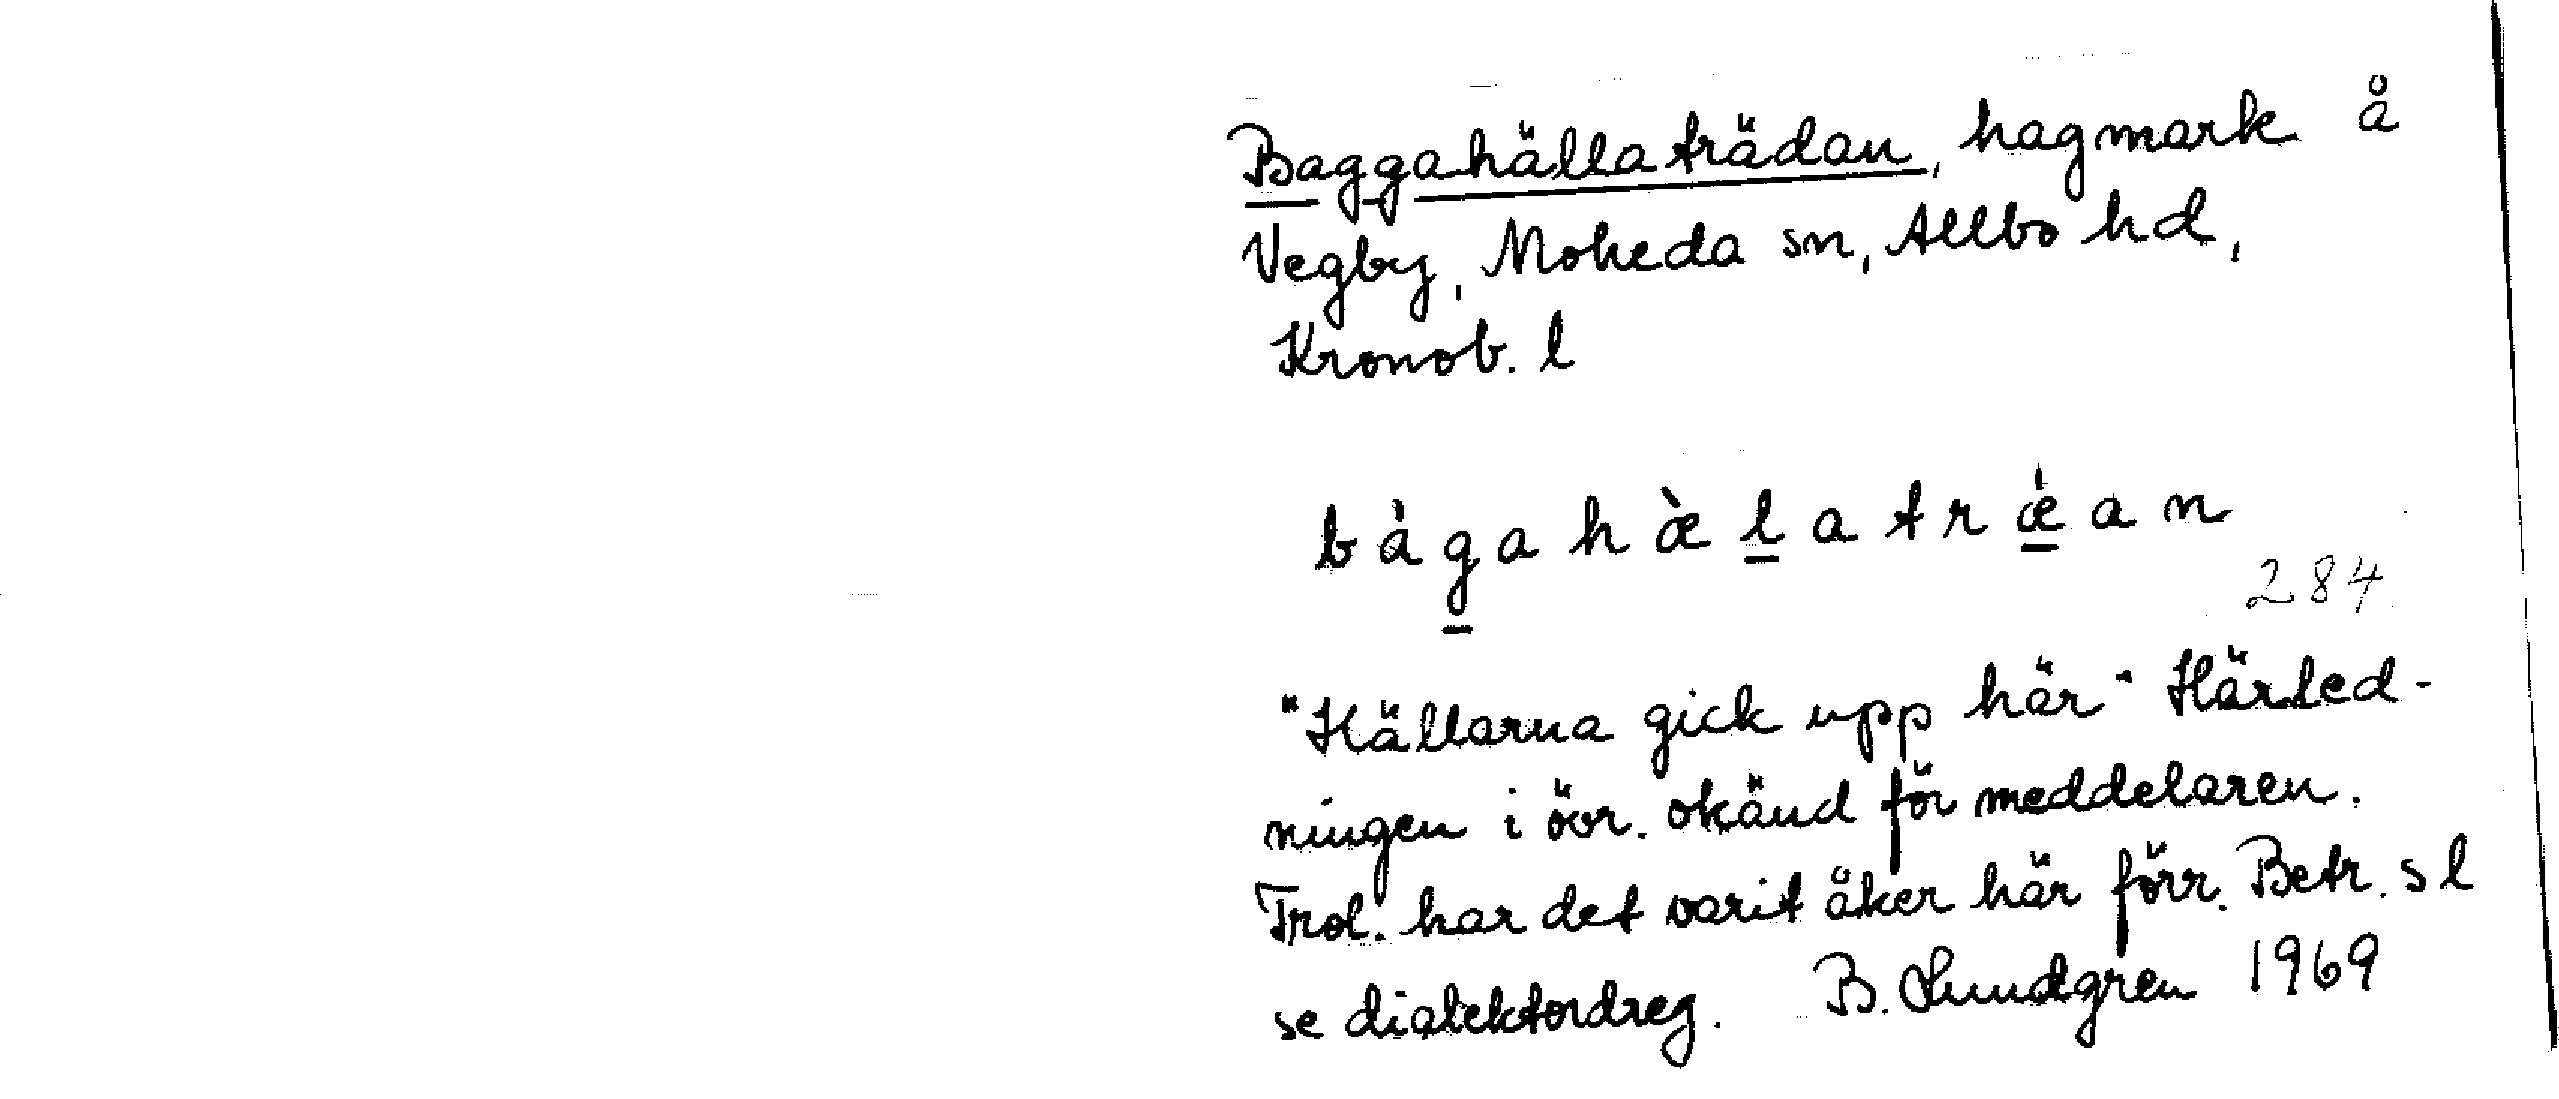 Baggahällaträdan, hagmark å
Vegby, Moheda sn, Allbo hd,
Kronob. l
bàgahæ̀latrǽan
284
"Hällarna gick upp här" Härled-
ningen i övr. okänd för meddelaren.
Trol. har det varit åker här förr. Betr. sl
se dialektordreg. B. Lundgren 1969